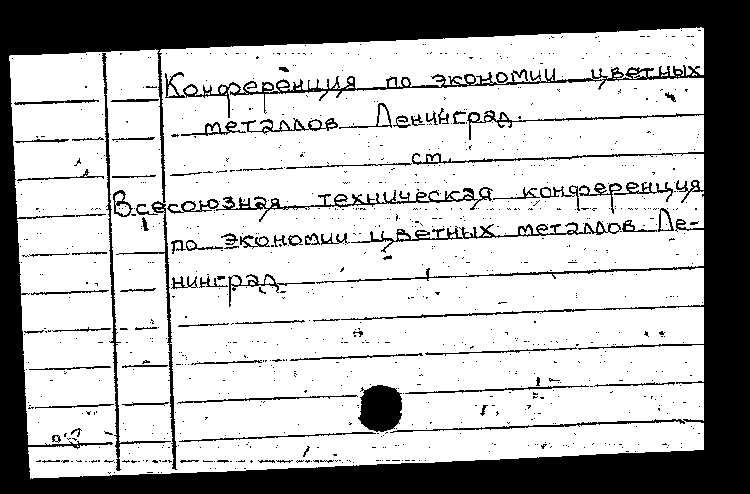 Конференция по экономии цветных
металлов. Ленинград.
ст.
Всесоюзная техническая конференция
по экономии цветных металлов. Ле-
нинград.